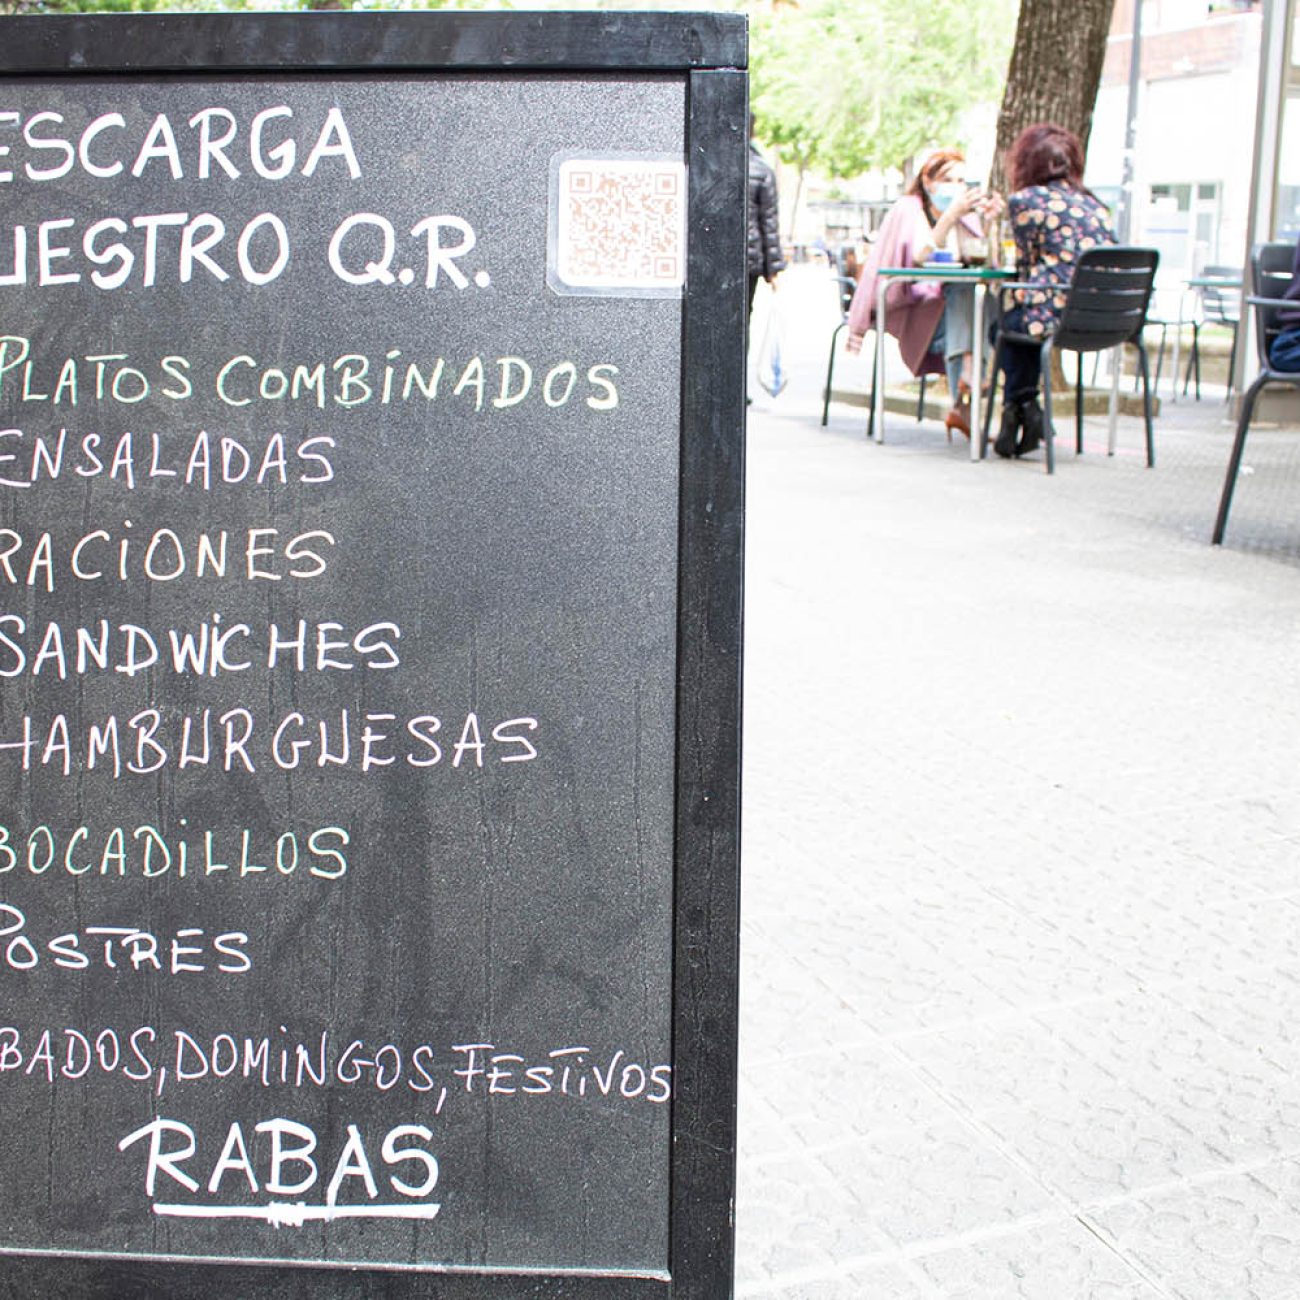 ESCARGA
UESTRO Q.R.
PLATOS COMBiNADOS
ENSALADAS
RACiONES
SANDWiCHES
HAMBURGUESAS
BOCADiLLOS
POSTRES
BADOS, DOMiNGOS, FESTiVOS
RABAS